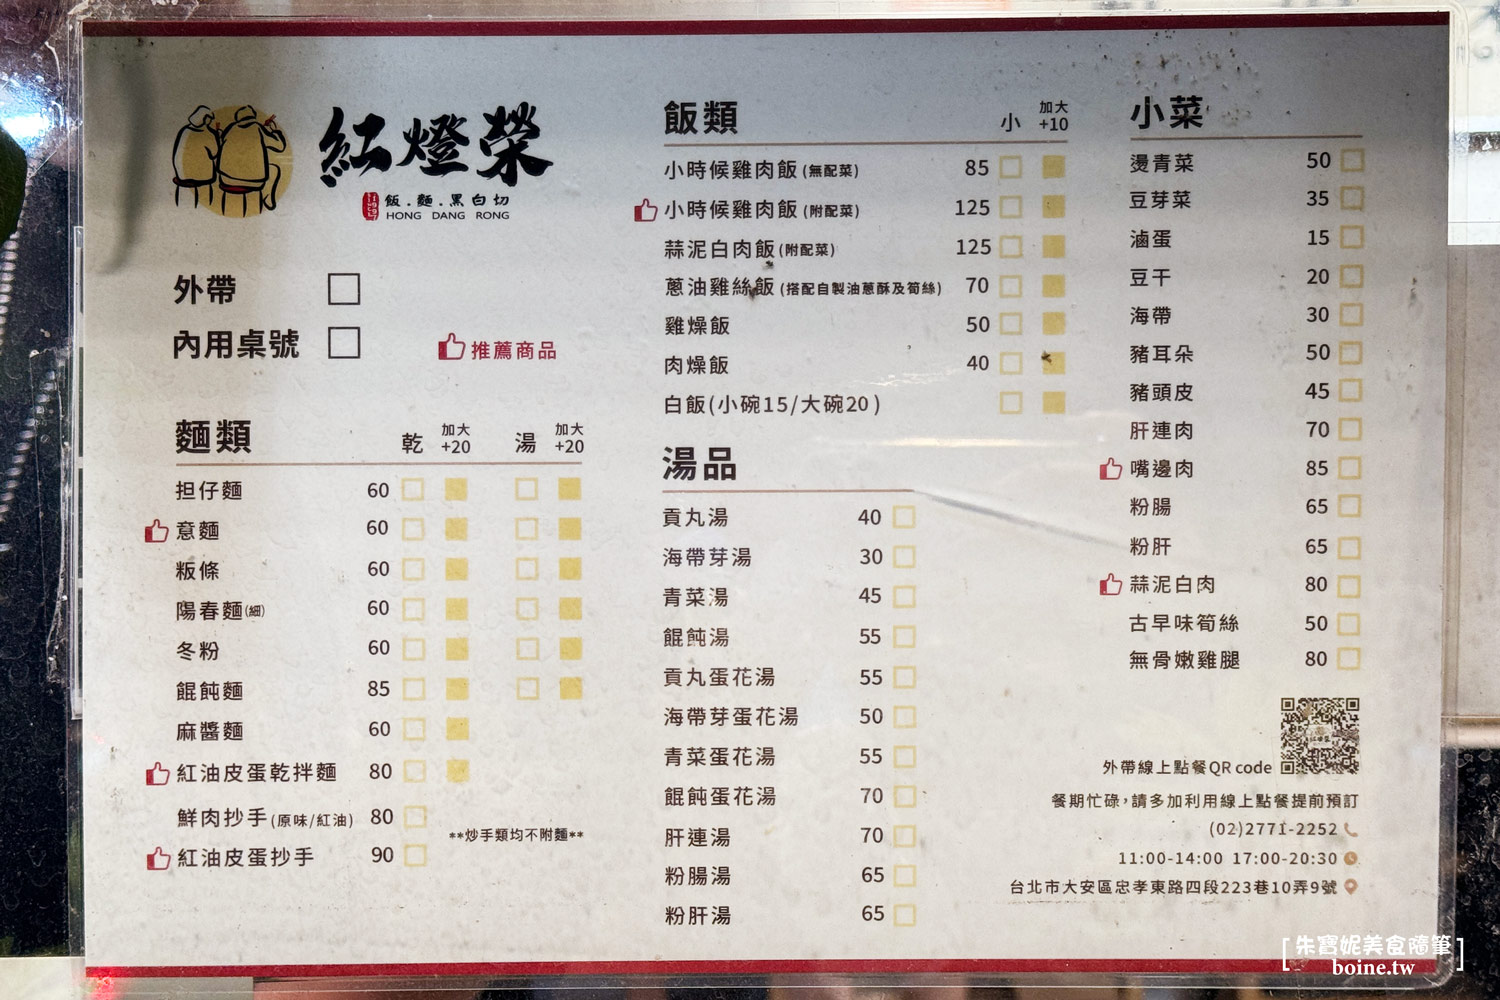 紅燈榮
飯.麵.黑白切
HONG DANG RONG
外帶
內用桌號
推薦商品
麵類 乾 加大+20 湯 加大+20
担仔麵 60
意麵 60
粄條 60
陽春麵(細) 60
冬粉 60
餛飩麵 85
麻醬麵 60
紅油皮蛋乾拌麵 80
鮮肉抄手(原味/紅油) 80
**炒手類均不附麵**
紅油皮蛋抄手 90
飯類 小 加大+10
小時候雞肉飯(無配菜) 85
小時候雞肉飯(附配菜) 125
蒜泥白肉飯(附配菜) 125
蔥油雞絲飯(搭配自製油蔥酥及筍絲) 70
雞燥飯 50
肉燥飯 40
白飯(小碗15/大碗20)
湯品
貢丸湯 40
海帶芽湯 30
青菜湯 45
餛飩湯 55
貢丸蛋花湯 55
海帶芽蛋花湯 50
青菜蛋花湯 55
餛飩蛋花湯 70
肝連湯 70
粉腸湯 65
粉肝湯 65
小菜
燙青菜 50
豆芽菜 35
滷蛋 15
豆干 20
海帶 30
豬耳朵 50
豬頭皮 45
肝連肉 70
嘴邊肉 85
粉腸 65
粉肝 65
蒜泥白肉 80
古早味筍絲 50
無骨嫩雞腿 80
外帶線上點餐QR code
餐期忙碌,請多加利用線上點餐提前預訂
(02)2771-2252
11:00-14:00 17:00-20:30
台北市大安區忠孝東路四段223巷10弄9號
[朱寶妮美食隨筆]
boine.tw